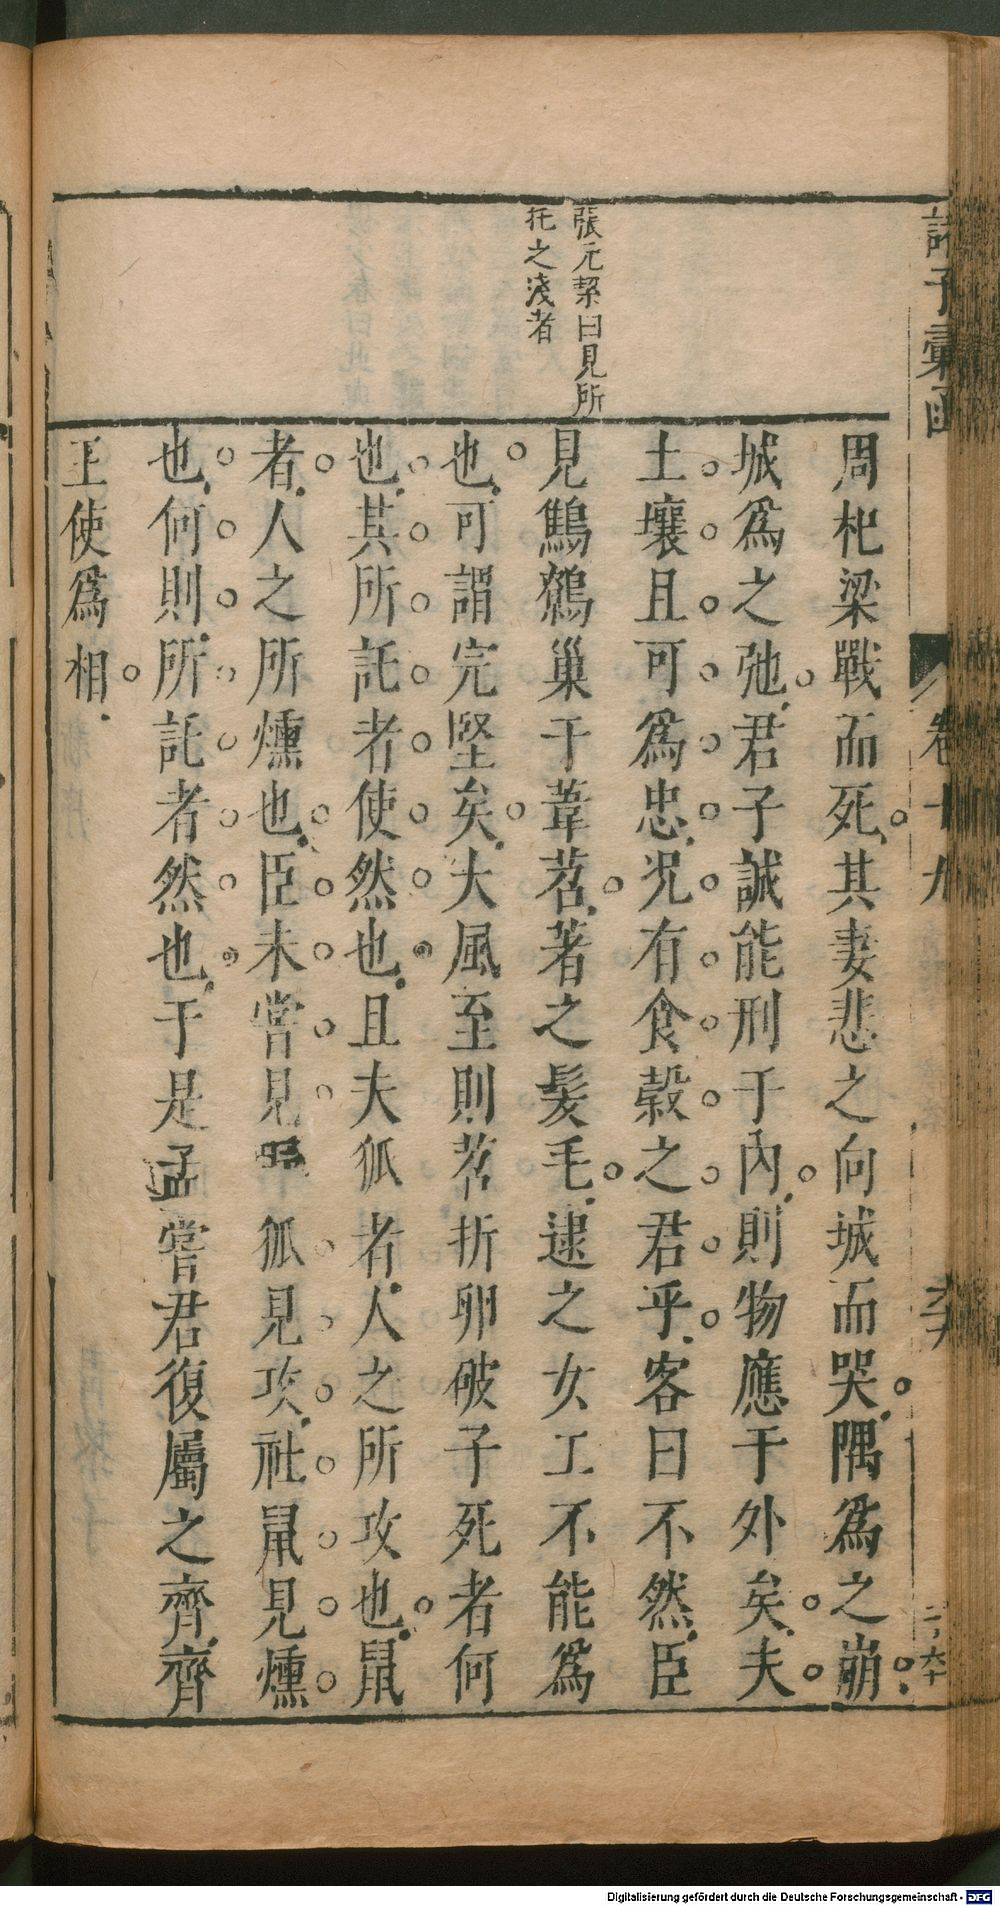 諸子彙函
卷十九
二十六
張元絜曰見所
托之淺者
周杞梁戰而死其妻悲之向城而哭隅爲之崩
城爲之弛君子誠能刑于內則物應于外矣夫
土壤且可爲忠況有食穀之君乎客曰不然臣
見鷦鷯巢于葦苕著之髮毛建之女工不能爲
也可謂完堅矣大風至則苕折卵破子死者何
也其所託者使然也且夫狐者人之所攻也鼠
者人之所燻也臣未嘗見狐見攻社鼠見燻
也何則所託者然也于是孟嘗君復屬之齊齊
王使爲相
Digitalisierung gefördert durch die Deutsche Forschungsgemeinschaft - DFG